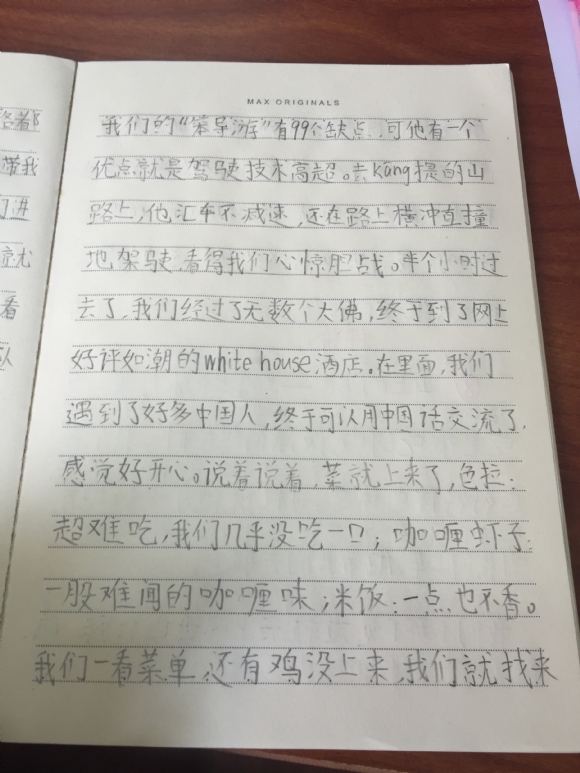 络着β
带我
门进
竟尤
看
队
MAX ORIGINALS
我们的“笨导游”有99个缺点,可他有一个
优点就是驾驶技术高超。去kāng提的山
路上,他汇车不减速,还在路上横冲直撞
地驾驶,看得我们心惊胆战。半个小时过
去了,我们经过了无数个大佛,终于到了网上
好评如潮的white house酒店。在里面,我们
遇到了好多中国人,终于可以用中国话交流了,
感觉好开心。说着说着,菜就上来了,色拉:
超难吃,我们几乎没吃一口;咖喱虾子:
一股难闻的咖喱味;米饭:一点也不香。
我们一看菜单,还有鸡没上来,我们就找来